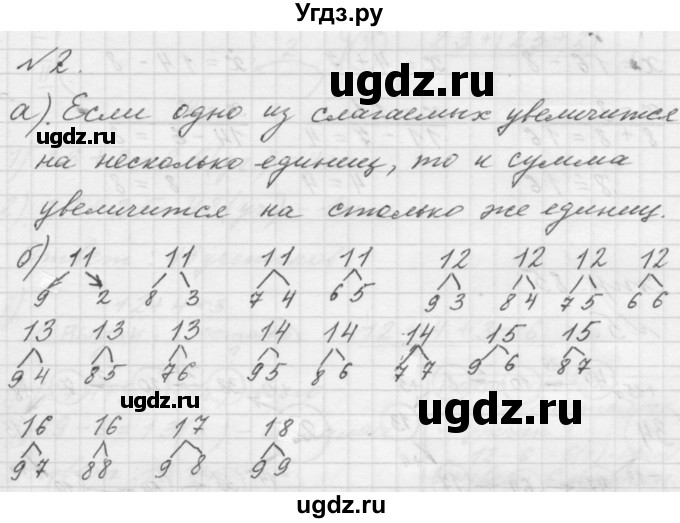 Угдз.ру
№2.
ugdz.ru
а). Если одно из слагаемых увеличится
ugdz.ru
на несколько единиц, то и сумма
увеличится на столько же единиц.
б) 11 11 11 11 12 12 12 12
9 2 8 3 7 4 6 5 9 3 8 4 7 5 6 6
13 13 13 14 14 14 15 15
9 4 8 5 7 6 9 5 8 6 7 7 9 6 8 7
ugdz.ru
ugdz.ru
16 16 17 18
9 7 8 8 9 8 9 9
ugdz.ru
Угдз.ру